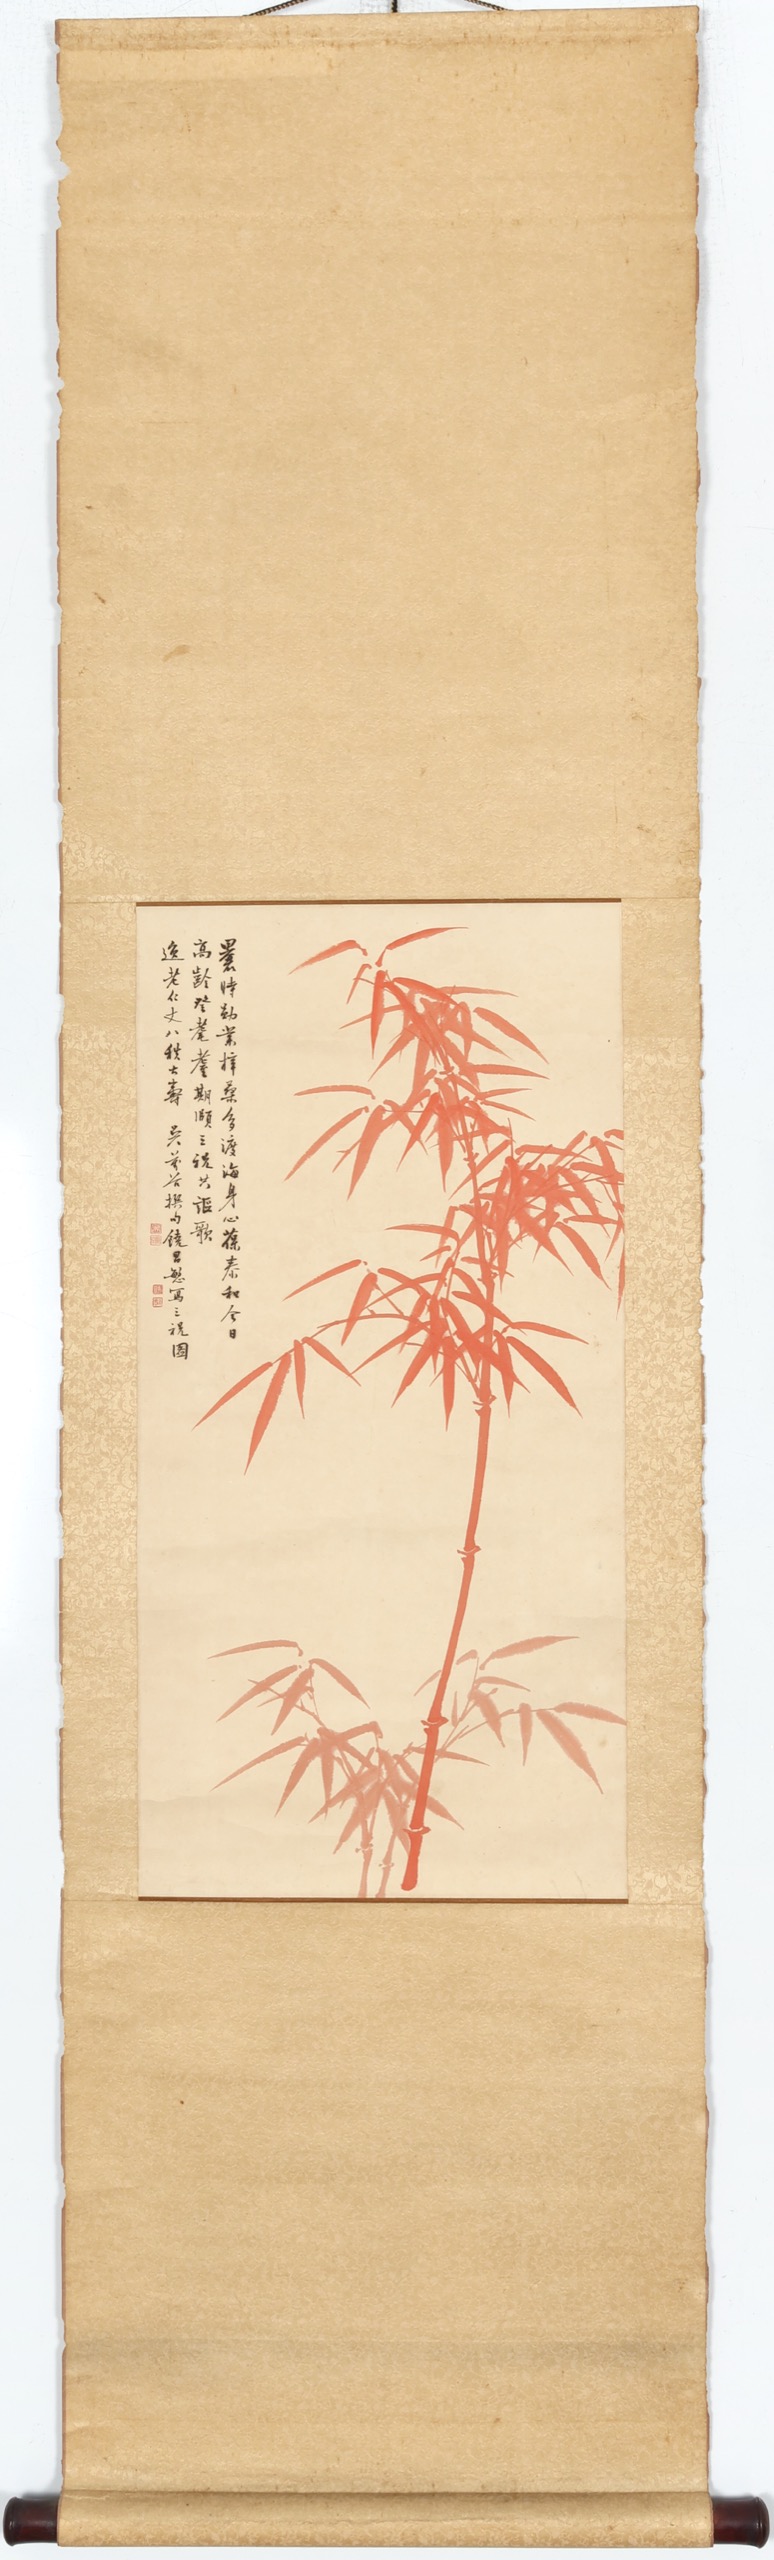 曩時勛業梓桑多渡海身心葆泰和今日
高齡登耄耋期頤三祝共謳歌
逸老仁丈八秩大壽 吳萬谷撰句饒昌懋寫三祝圖